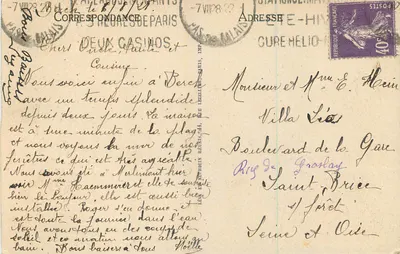 CORRESPONDANCE
Chers Oncle, Tante et
Cousine,
Nous voici enfin à Berck
avec un temps splendide
depuis deux jours. La maison
est à une minute de la plage
et nous voyons la mer de nos
fenêtres ce qui est très agréable.
Nous avons été à Malement hier
voir Mme et elle te souhaite
bien le bonjour, elle est aussi bien
installée. Roger s'en donne et
est toute la journée dans l'eau.
Nous avons tous eu des coups de
soleil et ce matin nous allons au
bain. Bons baisers à tous
7 VII 28
3 HEURES DE PARIS
DEUX CASINOS
PAS-DE-CALAIS
ADRESSE
CURE HELIO-M
40c
Monsieur et Mme E. Hein
Villa Léa
Boulevard de la Gare
Rue de Groslay
Saint Brice
s/ forêt
Seine et Oise